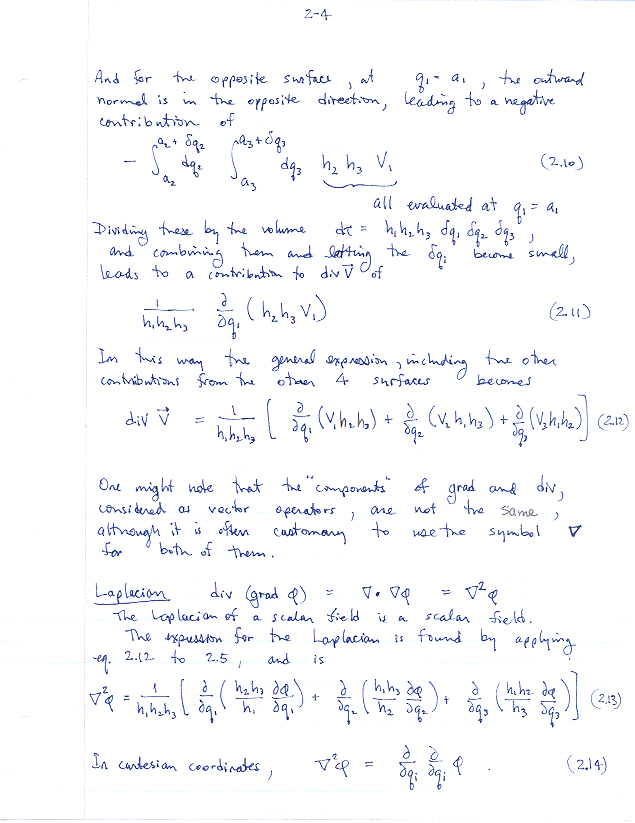 2-4
And for the opposite surface, at q₁ = a₁, the outward
normal is in the opposite direction, leading to a negative
contribution of
- ∫_{a₂}^{a₂+δq₂} dq₂ ∫_{a₃}^{a₃+δq₃} dq₃ h₂ h₃ V₁ (2.10)
all evaluated at q₁ = a₁
Dividing these by the volume dτ = h₁h₂h₃ δq₁ δq₂ δq₃,
and combining them and letting the δqᵢ become small,
leads to a contribution to div V⃗ of
1/(h₁h₂h₃) ∂/∂q₁ (h₂h₃V₁) (2.11)
In this way the general expression, including the other
contributions from the other 4 surfaces becomes
div V⃗ = 1/(h₁h₂h₃) [ ∂/∂q₁ (V₁h₂h₃) + ∂/∂q₂ (V₂h₁h₃) + ∂/∂q₃ (V₃h₁h₂) ] (2.12)
One might note that the "components" of grad and div,
considered as vector operators, are not the same,
although it is often customary to use the symbol ∇
for both of them.
Laplacian div (grad φ) = ∇·∇φ = ∇²φ
The Laplacian of a scalar field is a scalar field.
The expression for the Laplacian is found by applying
eq. 2.12 to 2.5, and is
∇²φ = 1/(h₁h₂h₃) [ ∂/∂q₁ (h₂h₃/h₁ ∂φ/∂q₁) + ∂/∂q₂ (h₁h₃/h₂ ∂φ/∂q₂) + ∂/∂q₃ (h₁h₂/h₃ ∂φ/∂q₃) ] (2.13)
In cartesian coordinates, ∇²φ = ∂/∂qᵢ ∂/∂qᵢ φ. (2.14)